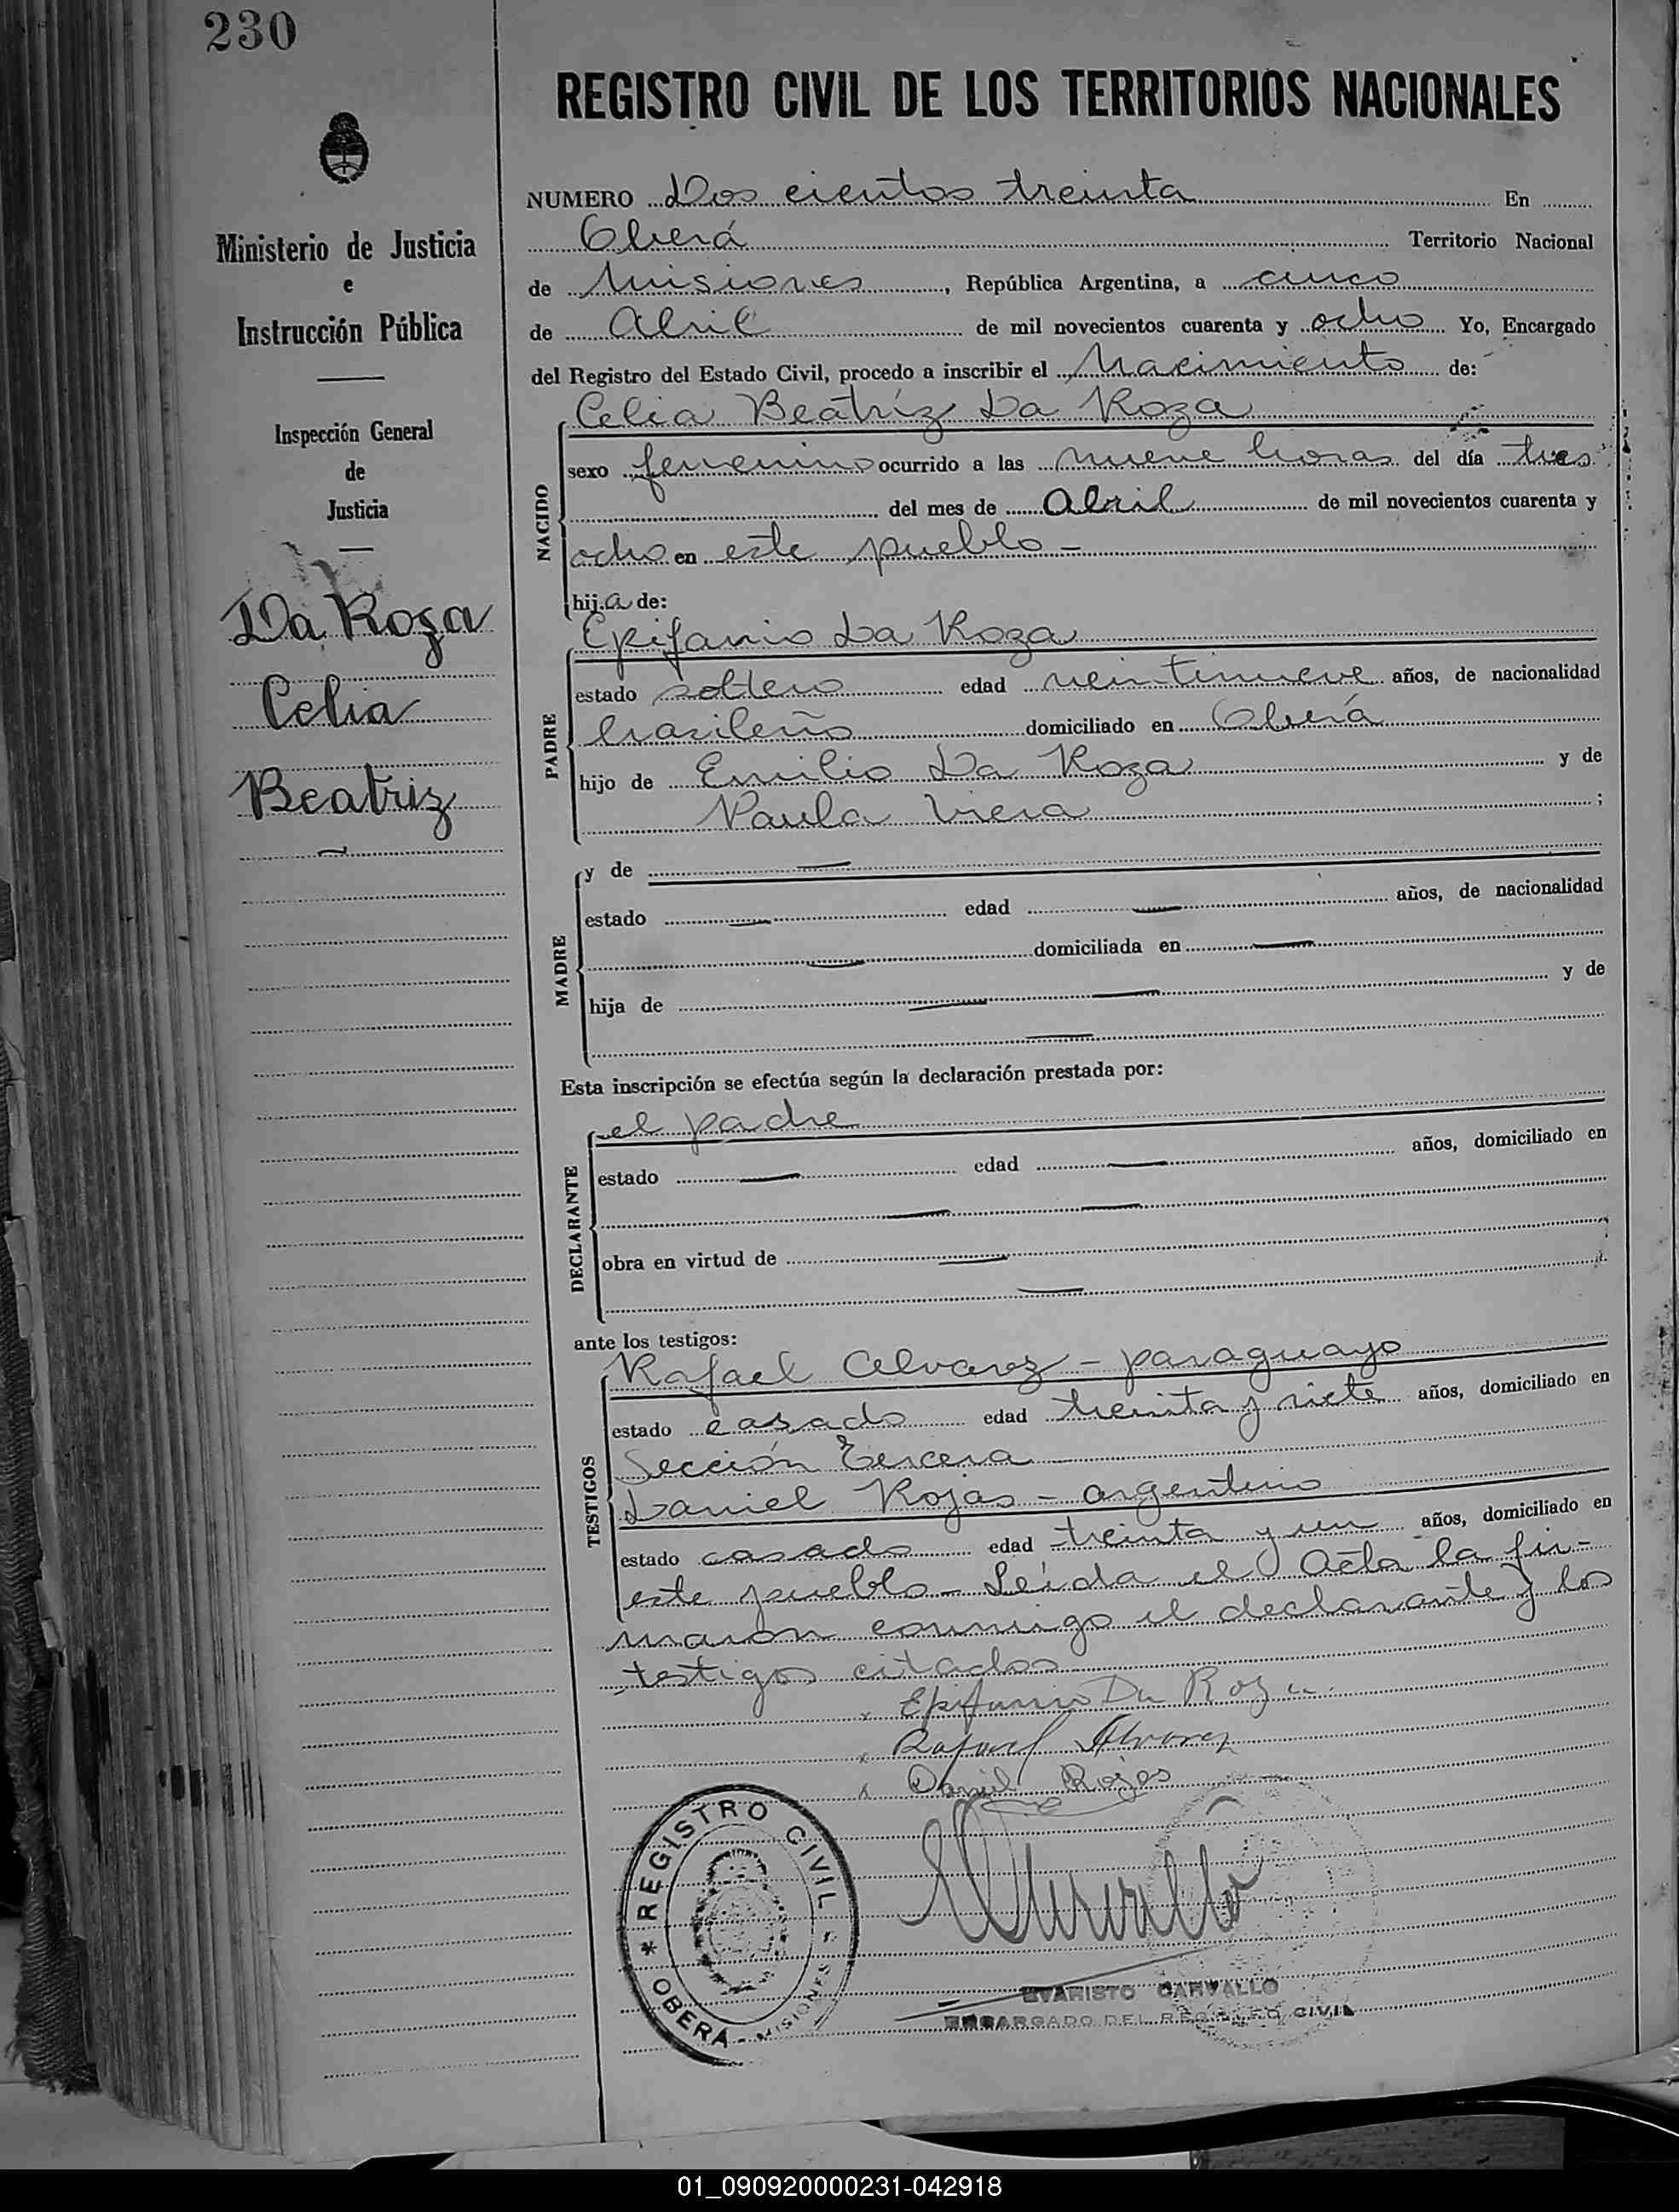 230
REGISTRO CIVIL DE LOS TERRITORIOS NACIONALES
Ministerio de Justicia
e
Instrucción Pública
Inspección General
de
Justicia
Da Roza
Celia
Beatriz
NUMERO Dos cientos treinta En
Oberá Territorio Nacional
de Misiones, República Argentina, a cinco
de Abril de mil novecientos cuarenta y ocho Yo, Encargado
del Registro del Estado Civil, procedo a inscribir el Nacimiento de:
Celia Beatríz Da Roza
NACIDO
sexo femenino ocurrido a las nueve horas del día tres
del mes de Abril de mil novecientos cuarenta y
ocho en este pueblo -
hija de:
Epifanio Da Roza
PADRE
estado soltero edad veintinueve años, de nacionalidad
brasileño domiciliado en Oberá
hijo de Emilio Da Roza y de
Paula Viera ;
y de
MADRE
estado edad años, de nacionalidad
domiciliada en
hija de y de
Esta inscripción se efectúa según la declaración prestada por:
el padre
DECLARANTE
estado edad años, domiciliado en
obra en virtud de
ante los testigos:
Rafael Alvarez - paraguayo
TESTIGOS
estado casado edad treinta y siete años, domiciliado en
Sección Tercera
Daniel Rojas - argentino
estado casado edad treinta y un años, domiciliado en
este pueblo - Leída el Acta la fir-
maron conmigo el declarante y los
testigos citados
x Epifanio Da Roza
x Rafael Alvarez
x Daniel Rojas
* REGISTRO CIVIL
OBERÁ - MISIONES
EVARISTO CARVALLO
ENCARGADO DEL REGISTRO CIVIL
01_090920000231-042918